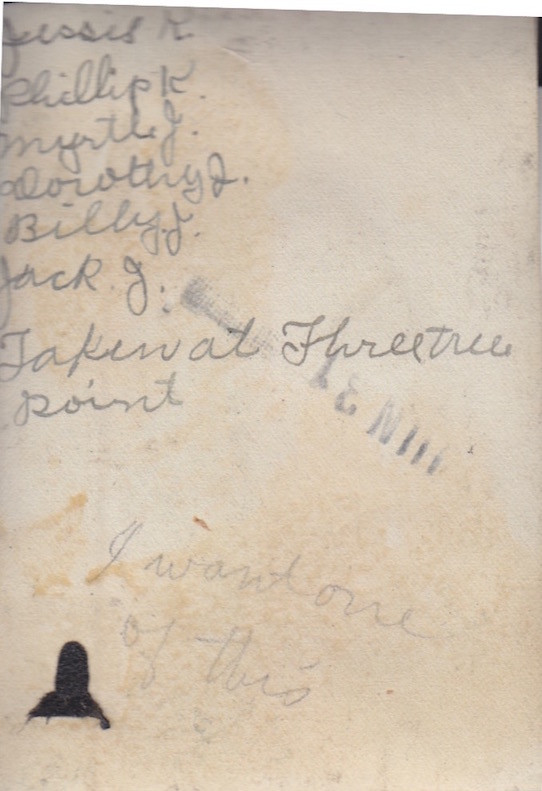 Jessie K.
Phillip K.
Myrtle J.
Dorothy J.
Billy J.
Jack J.
Taken at Threetree
point
I want one
of this